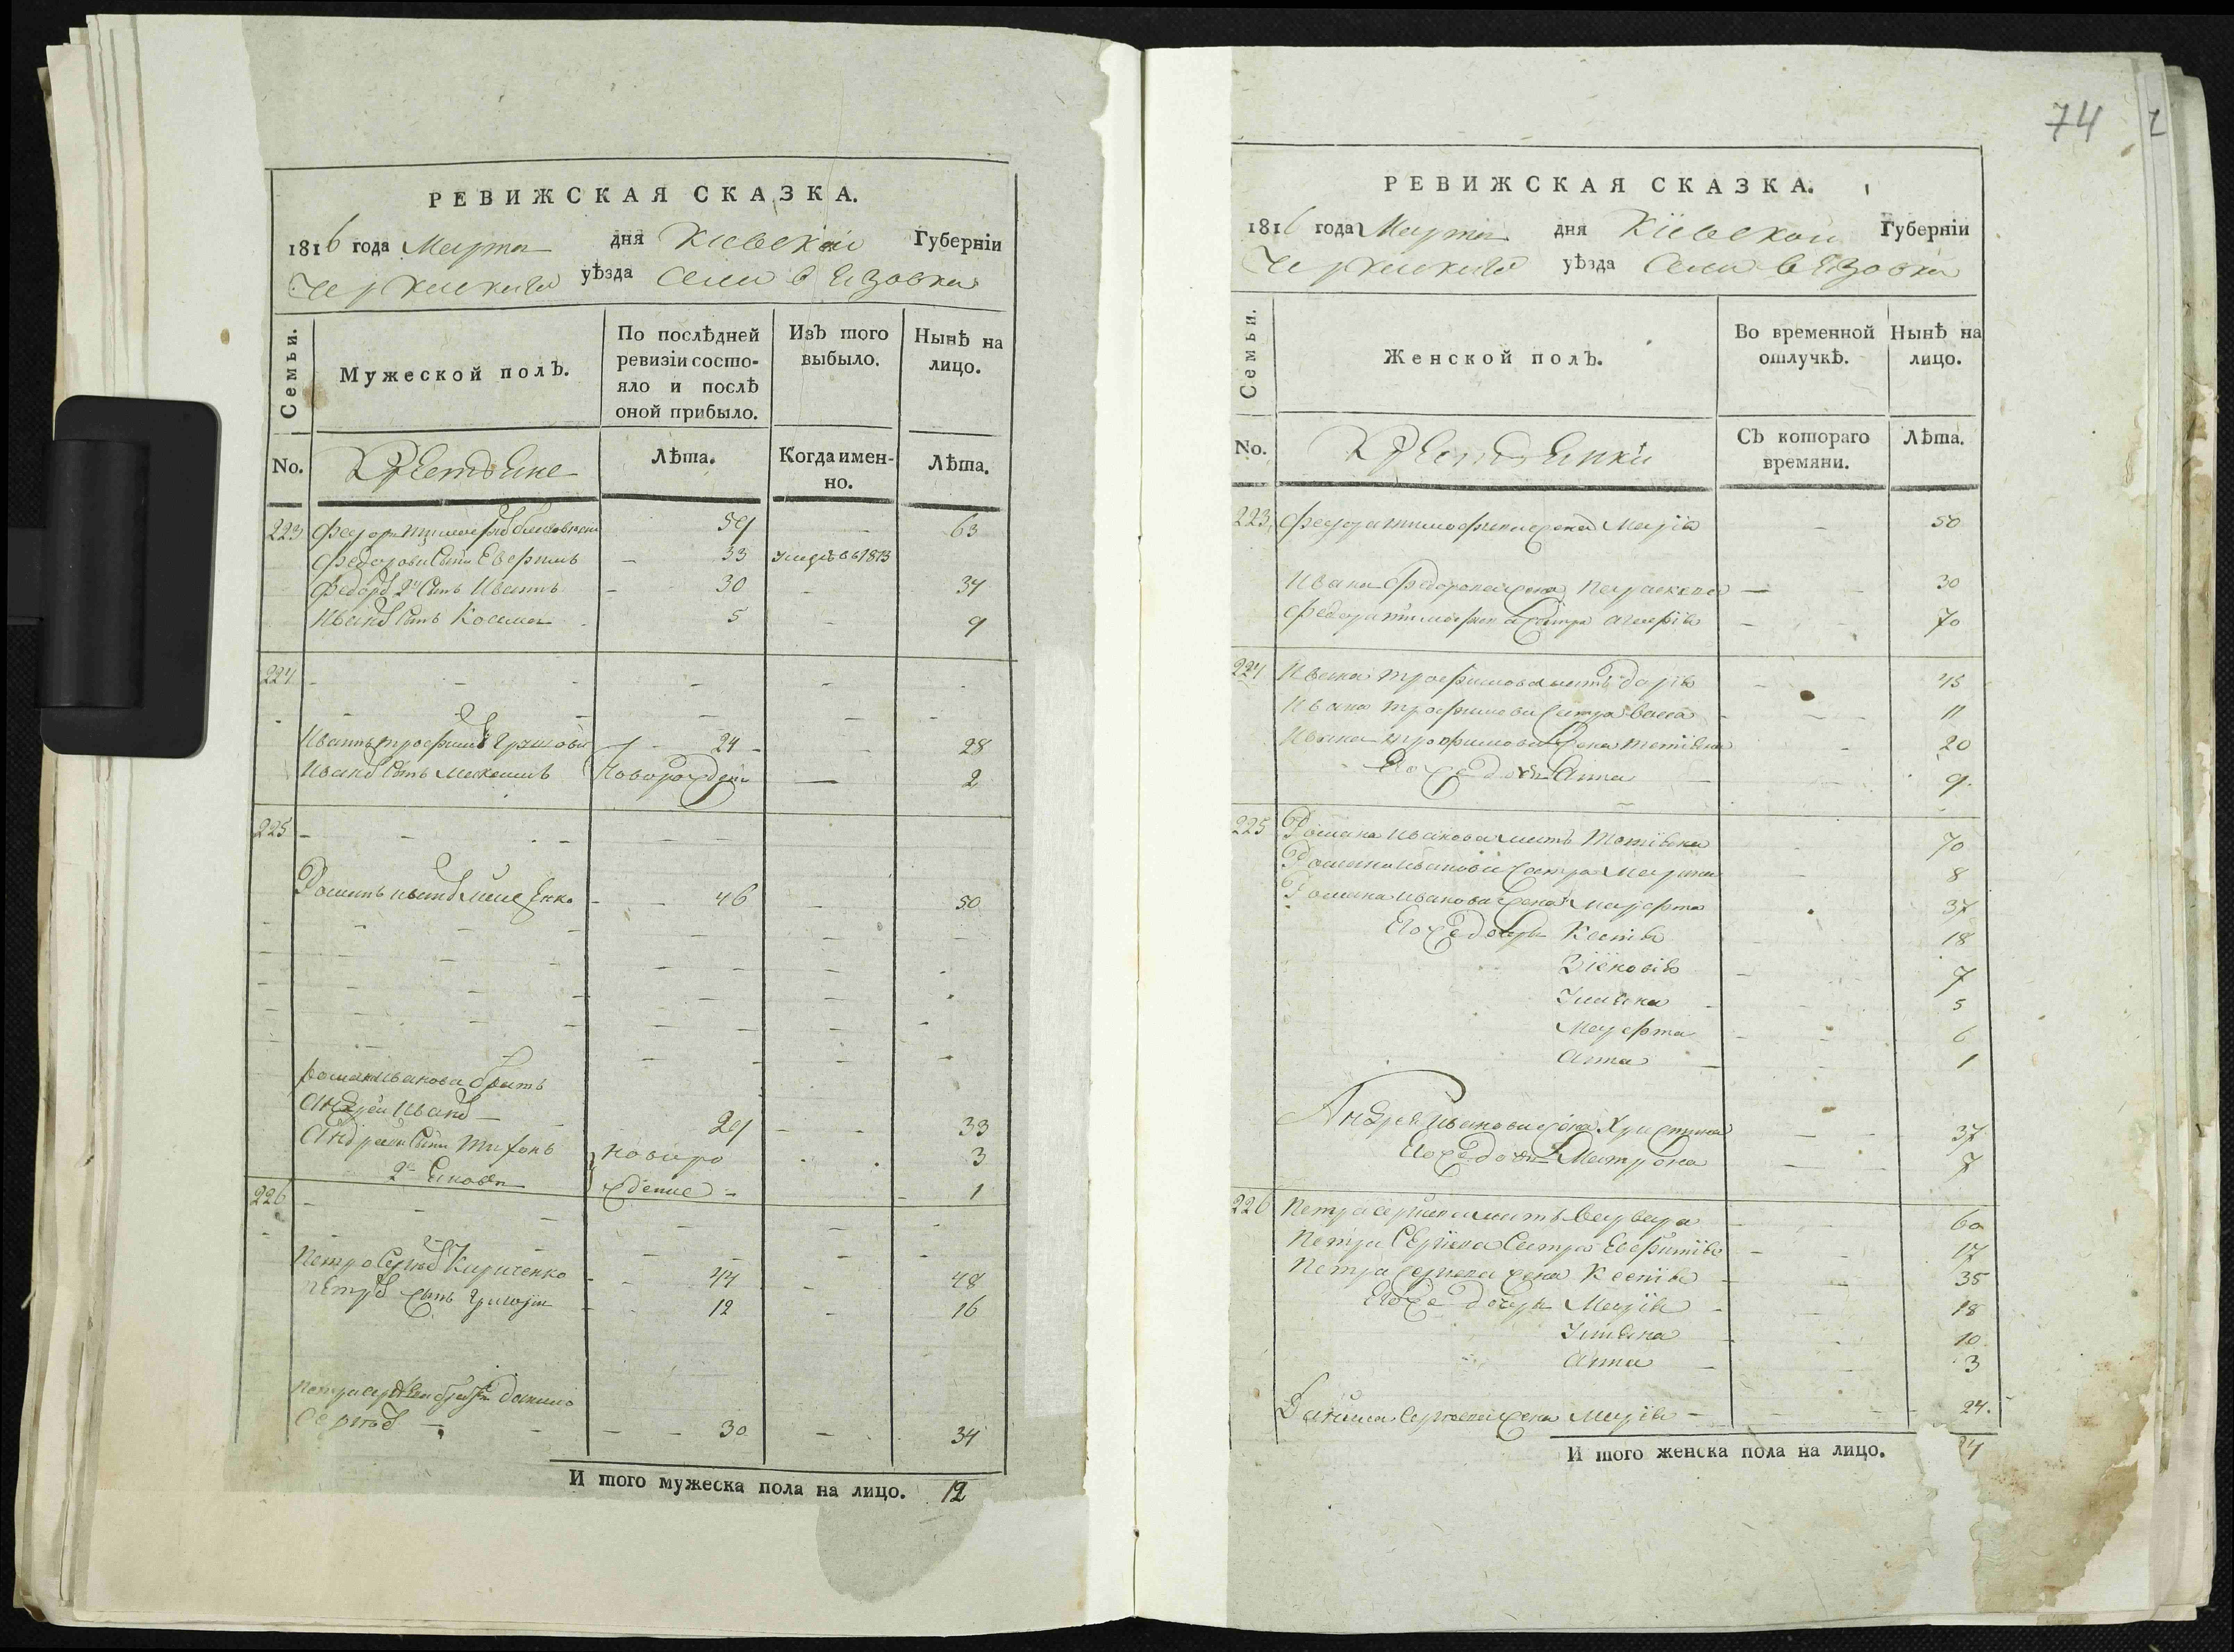 РЕВИЖСКАЯ СКАЗКА.
1816 года Марта дня Кіевской Губерніи
Черкаскаго уѣзда Села Вязовка
Семьи.
Мужеской полъ.
По послѣдней ревизіи состояло и послѣ оной прибыло.
Изъ того выбыло.
Нынѣ на лицо.
No.
Крестьяне
Лѣта.
Когда именно.
Лѣта.
223 Федоръ 59 63
Федорови Сынъ 33 1813
Федоровъ 2й Сынъ Иванъ 30 34
Ивановъ Сынъ Косма 5 9
224
Иванъ Трофимовъ 24 28
Ивановъ Сынъ Максимъ Новорожденъ 2
225
Романъ Ивановъ 46 50
Романа Иванова братъ
Андрей Ивановъ 29 33
Андреевъ Сынъ новоро 3
2й Яковъ ждение 1
226
Петро Сергеевъ Кириченко 44 48
Петровъ Сынъ Григори 12 16
Петра Сергеева братъ Данило
Сергеевъ 30 34
И того мужеска пола на лицо. 12
74
РЕВИЖСКАЯ СКАЗКА.
1816 года Марта дня Кіевской Губерніи
Черкаскаго уѣзда Села Вязовка
Семьи.
Женской полъ.
Во временной отлучкѣ.
Нынѣ на лицо.
No.
Крестьянки
Съ котораго времяни.
Лѣта.
223 Федора Тимофеева жена Марія 50
Ивана Федорова жена Параскева 30
Федора Тимофеева Сестра Агафія 70
224 Ивана Трофимова мать Дарія 45
Ивана Трофимова Сестра 11
Ивана Трофимова Жена Татіяна 20
Его же дочь Анна 9
225 Романа Иванова мать Татіяна 70
Романа Иванова Сестра Марина 8
Романа Иванова жена Марфа 37
Его же дочери Ксенія 18
Зіновія 7
Уліяна 5
Марфа 6
Анна 1
Андрея Иванова жена Христина 37
Его же дочь Матрона 7
226 Петра Сергиева мать Варвара 60
Петра Сергиева Сестра Евфимія 17
Петра Сергиева жена Ксенія 35
Его же дочери Марія 18
Уліяна 10
Анна 3
Данила Сергеева жена Марія 24.
И того женска пола на лицо. 24